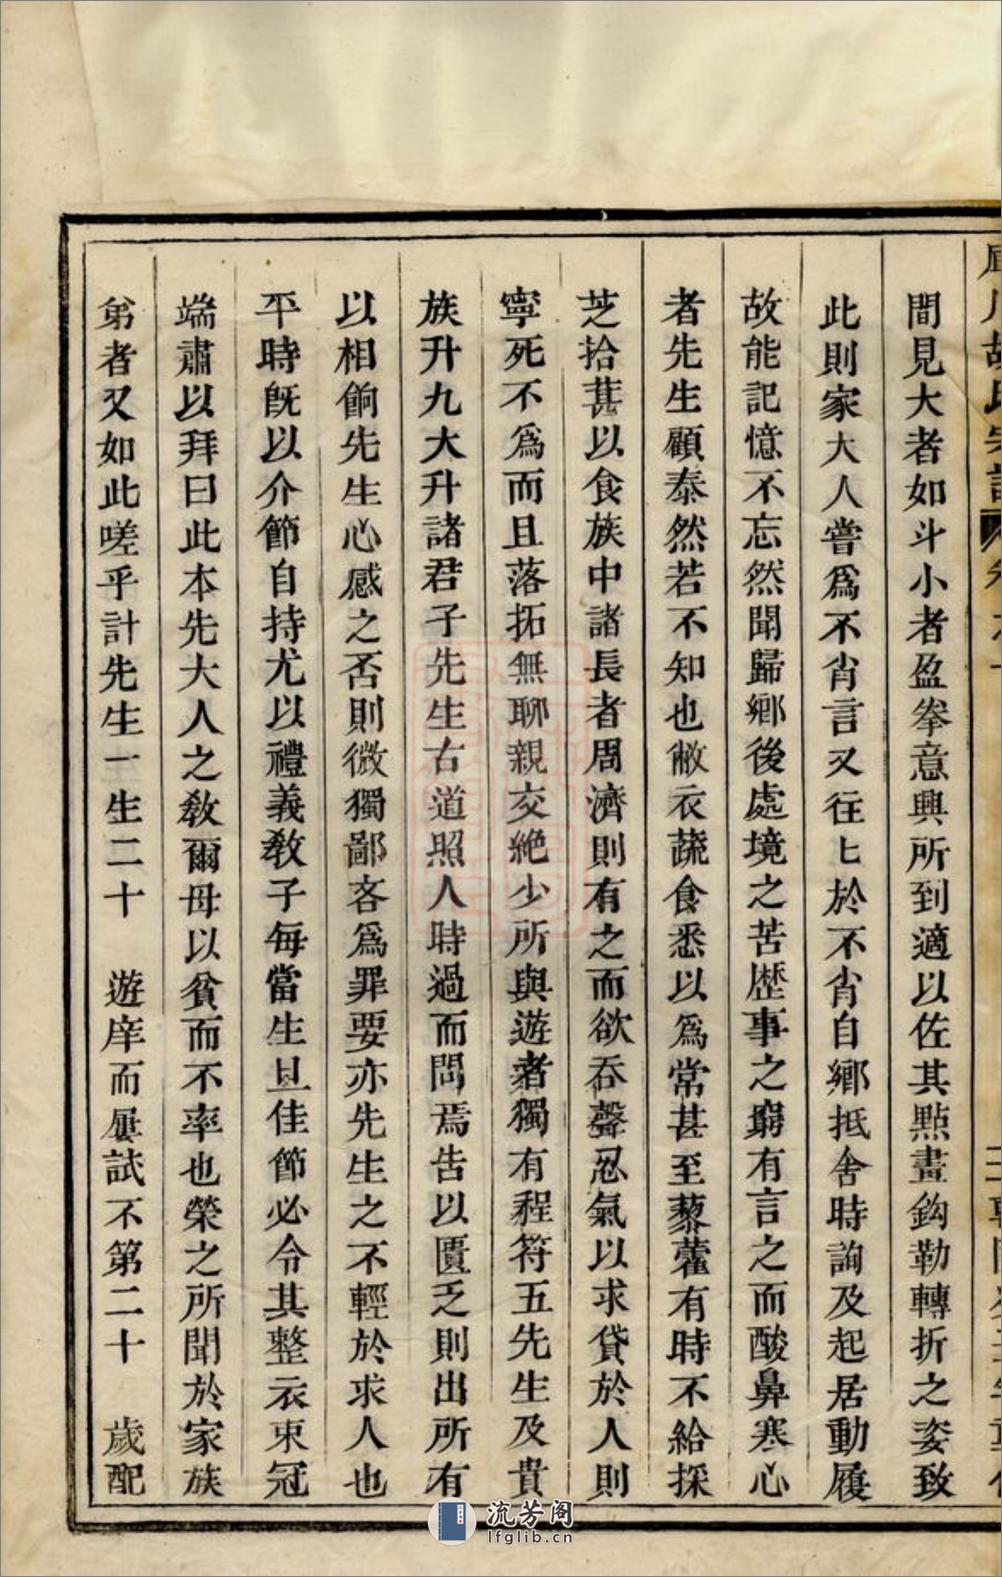 間見大者如斗小者盈拳意興所到適以佐其點畫鈎勒轉折之姿致
此則家大人嘗爲不肖言又往匕於不肖自鄉抵舍時詢及起居動履
故能記憶不忘然聞歸鄉後處境之苦歴事之窮有言之而酸鼻寒心
者先生顧泰然若不知也敝衣蔬食悉以爲常甚至藜藿有時不給採
芝拾葚以食族中諸長者周濟則有之而欲吞聲忍氣以求貸於人則
寧死不爲而且落拓無聊親交絶少所與遊者獨有程符五先生及貴
族升九大升諸君子先生古道照人時過而問焉告以匱乏則出所有
以相餉先生心感之否則微獨鄙吝爲罪要亦先生之不輕於求人也
平時旣以介節自持尤以禮義敎子每當生旦佳節必令其整衣束冠
端肅以拜曰此本先大人之敎爾毋以貧而不率也榮之所聞於家族
弟者又如此嗟乎計先生一生二十 遊庠而屢試不第二十 歲配
流芳阁
lfglib.cn